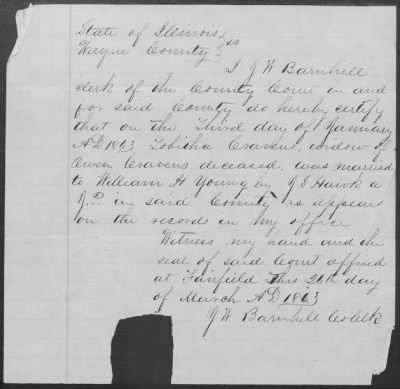 State of Illinois } ss
Wayne County }
I J W Barnhill
clerk of the County Court in and
for said County do hereby certify
that on the Third day of January
AD 1863 Lobisha Cravens, widow of
Owen Cravens deceased, was married
to William H Young by J E Hawk a
J.P. in said County as appears
on the records in my office
Witness my hand and the
seal of said Court affixed
at Fairfield this 26th day
of March AD 1863
J W Barnhill Co Clk